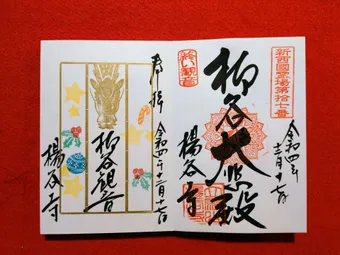 新西國霊場第拾七番
令和四年十二月十七日
柳谷大悲殿
楊谷寺
奉拝
令和四年十二月十七日
柳谷観音
楊谷寺